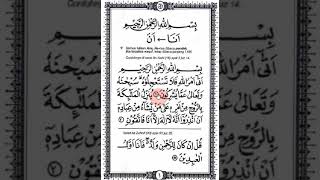 بِسْمِ اللَّهِ الرَّحْمَٰنِ الرَّحِيمِ
أَنَا ← أَنَ
بِسْمِ اللَّهِ الرَّحْمَٰنِ الرَّحِيمِ
أَتَىٰ أَمْرُ اللَّهِ فَلَا تَسْتَعْجِلُوهُ سُبْحَانَهُ
وَتَعَالَىٰ عَمَّا يُشْرِكُونَ ① يُنَزِّلُ الْمَلَائِكَةَ
بِالرُّوحِ مِنْ أَمْرِهِ عَلَىٰ مَنْ يَشَاءُ مِنْ عِبَادِهِ
أَنْ أَنْذِرُوا أَنَّهُ لَا إِلَٰهَ إِلَّا أَنَا فَاتَّقُونِ ②
قُلْ إِنْ كَانَ لِلرَّحْمَٰنِ وَلَدٌ فَأَنَا أَوَّلُ
الْعَابِدِينَ